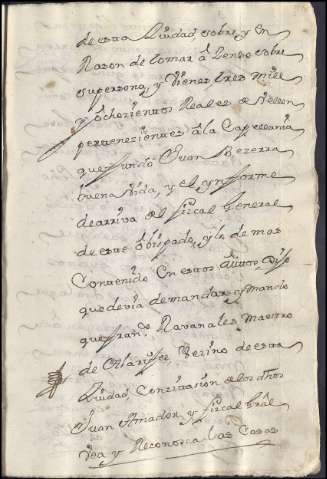 de esta Ciudad sobre, y en
Razon de tomar a Zenso sobre
su persona, y vienes tres mill
y ochozientos Reales de Vellon
pertenezientes a la Capellania
que fundo Juan Bezerra
buena vida, y el ynforme
de arriva del fiscal General
de este obispado, y lo demas
Contenido En estos autos Dijo
que devia de mandar, y mando
que fran.co Ravanales Maestro
de Alarife, Vezino de esta
Ciudad, Con zitazion de los dhos
Juan Amador y fiscal Gral
Vea y Reconosca las Casas